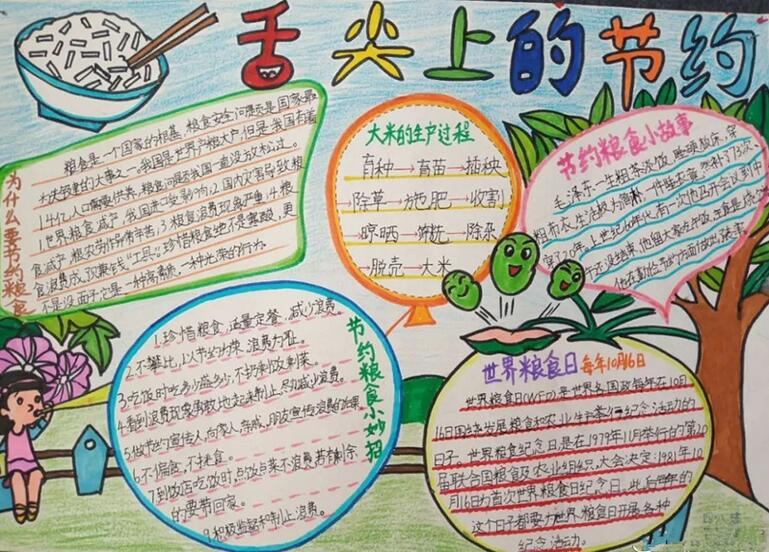 舌尖上的节约
为什么要节约粮食
粮食是一个国家的根基,粮食安全问题是国家最
大我国是世界产粮大户,但是我国有着
14亿人口需要供养,粮食问题我国一直没放松过。
1.世界粮食减产,我国进口受影响;2.国内灾害导致粮
食减产,粮农劳作异常辛苦;3.粮食浪费现象严重;4.粮
食浪费成“工具”。珍惜粮食绝不是寒酸,更
不是没面子,它是一种高素质,一种光荣的行为。
大米的生产过程
育种→育苗→插秧
→除草→施肥→收割
→晾晒→筛选→除杂
→脱壳→大米
节约粮食小故事
毛泽东一生粗茶淡饭,睡硬板床,穿
粗布衣,生活极为简朴,一件睡衣竟然补了73次
穿了20年。上世纪60年代,有一次他召开会议到中
午还没结束,他留大家吃午饭,
他在勤俭节约方面做出了表率。
节约粮食小妙招
1.珍惜粮食,适量定餐,减少浪费。
2.不攀比,以节约为荣,浪费为耻。
3.吃饭时吃多少盛多少,不扔剩饭剩菜。
4.看到浪费现象勇敢地起来制止,尽力减少浪费。
5.做节约宣传人,向家人、亲戚、朋友宣传浪费的
6.不偏食,不挑食。
7.到饭店吃饭时,点饭点菜不浪费,若有剩余
的要带回家。
积极监督和制止浪费。
世界粮食日 每年10月16日
世界粮食日(WFD)是世界各国政每年在10月
16日围绕发展粮食和农业生产举行纪念活动的
日子。世界粮食纪念日,是在1979年11月举行的第20
届联合国粮食及农业组织,大会决定:1981年10
月16为首次世界粮食日纪念日。此后每年的
这个日子都要为世界粮食日开展各种
纪念活动。